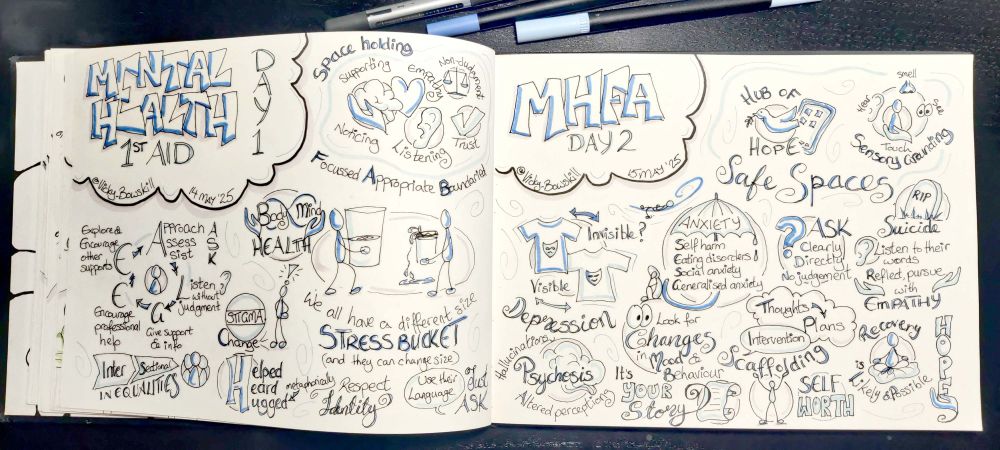 MENTAL
HEALTH
1ST AID
DAY 1
@Vicky.Bowskill
14 May '25
Space holding
Supporting
Empathy
Non-Judgement
Noticing
Listening
Trust
Focussed Appropriate Boundaried
Explore &
Encourage
other
supports
Approach
Assess
Assist
ASK
E
Listen
without
Judgment
E
G
Encourage
professional
help
Give support
& info
Body Mind
HEALTH
STIGMA
Change
We all have a different size
STRESS BUCKET
(and they can change size
Inter Sectional
INEQUALITIES
Helped
Heard
Hugged*
*metaphorically
Respect
Identity
Use their
Language
or just
ASK
MHFA
DAY 2
@Vicky.Bowskill
15 May '25
HUB OF
HOPE
smell
Hear
see
Touch
Sensory Grounding
Safe Spaces
Invisible?
Visible
ANXIETY
Self harm
Eating disorders
Social anxiety
Generalised anxiety
? ASK
Clearly
Directly
No judgement
RIP
Suicide
? Listen to their
words
Reflect, pursue
with
EMPATHY
Depression
Look for
Changes
in Mood &
Behaviour
Thoughts
Plans
Intervention
Scaffolding
Recovery
is Likely & Possible
HOPE
Hallucinations
Psychosis
Altered perceptions
It's
YOUR
Story
SELF
WORTH